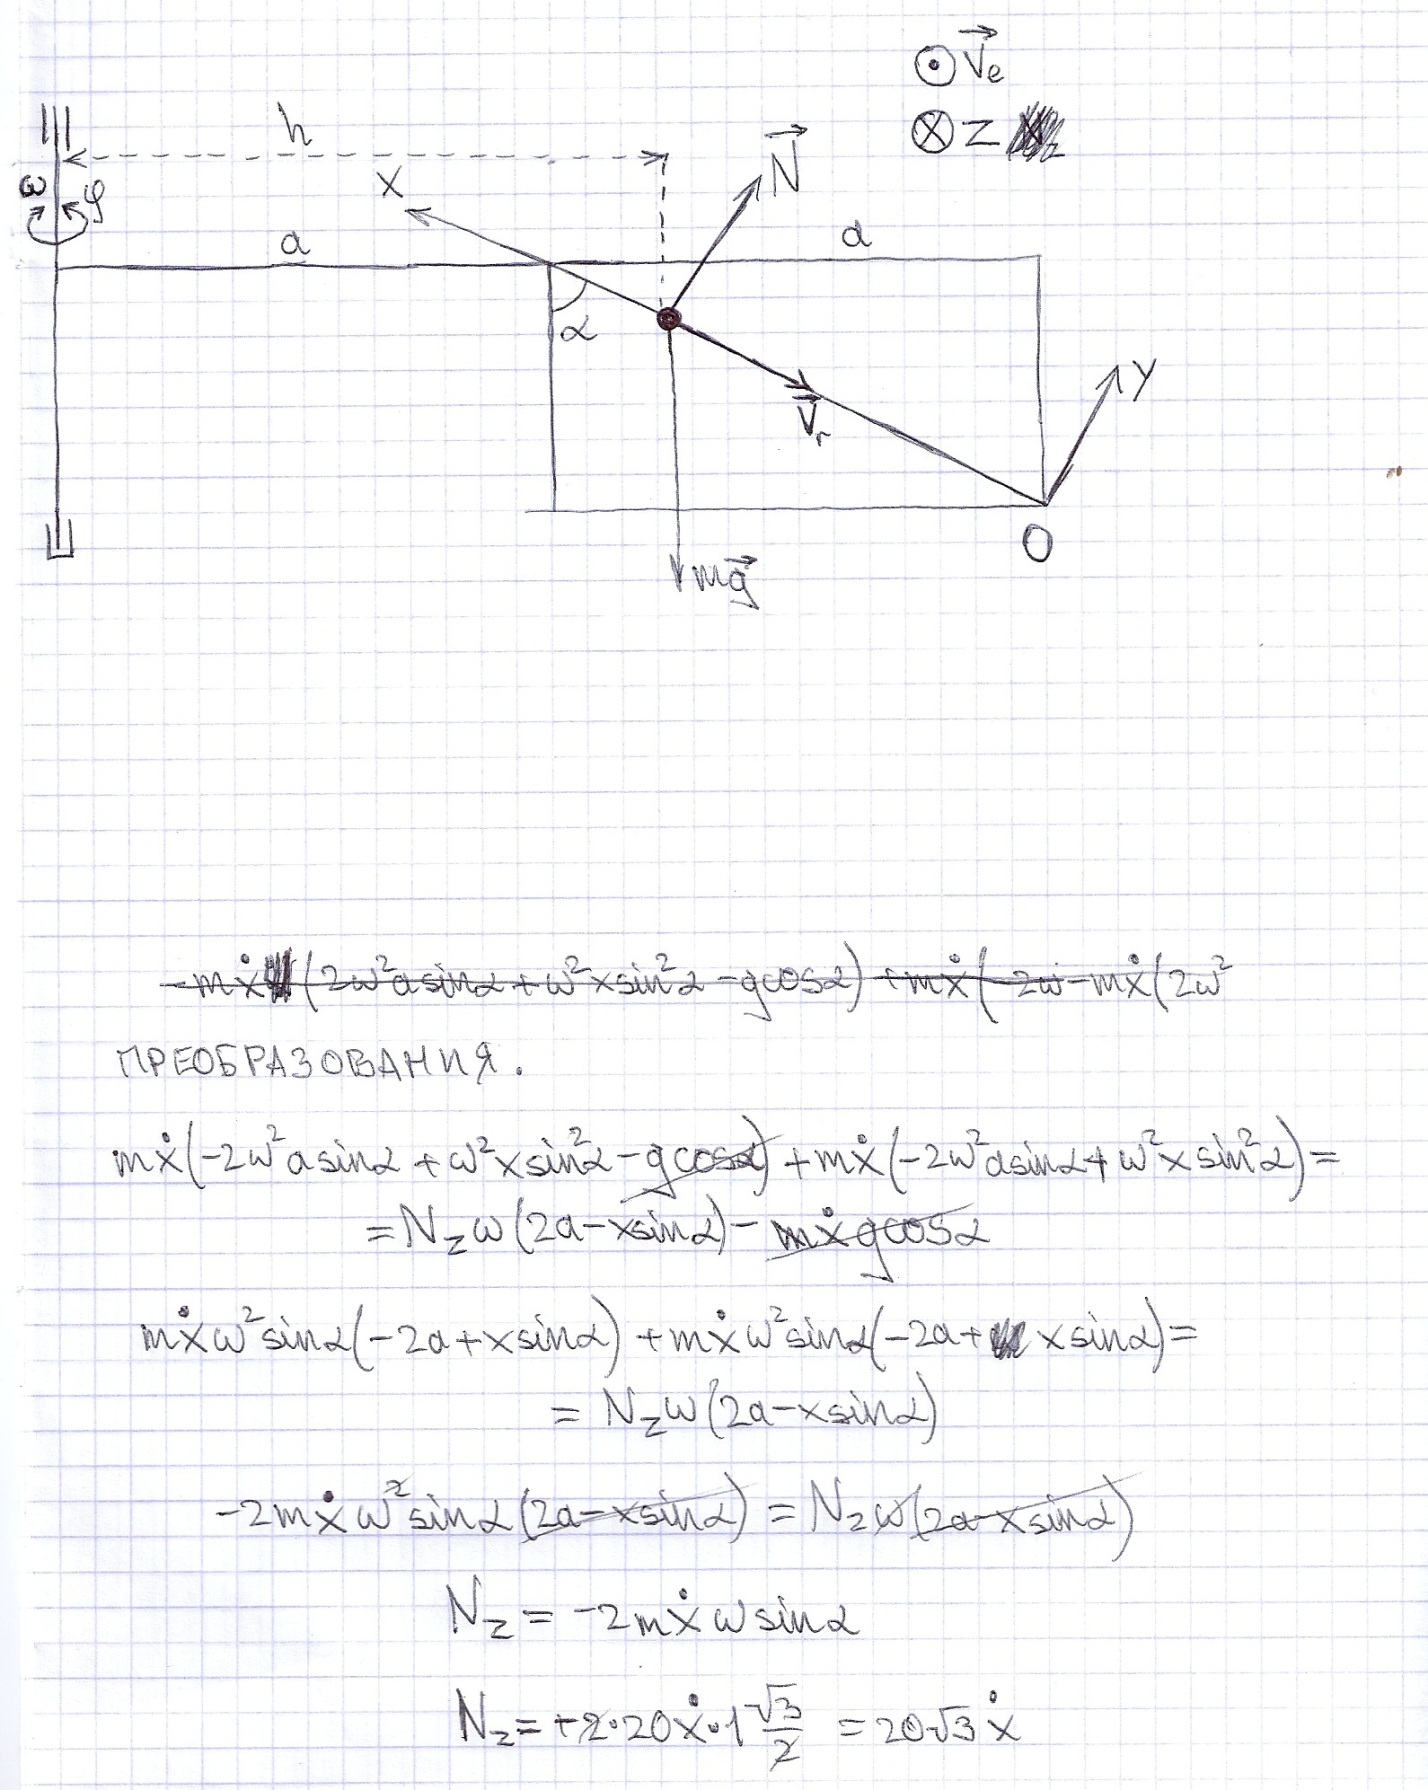 ⊙ V⃗e
⊗ z
h
N⃗
x
ω φ
a
a
α
y
V⃗r
O
mg⃗
-mẋ(2ω²a sinα + ω²x sin²α - g cosα) + mẋ(-2ω - mẋ(2ω²
ПРЕОБРАЗОВАНИЯ.
mẋ(-2ω²a sinα + ω²x sin²α - g cosα) + mẋ(-2ω²a sinα + ω²x sin²α) =
= N_z ω(2a - x sinα) - mẋ g cosα
mẋω² sinα(-2a + x sinα) + mẋω² sinα(-2a + x sinα) =
= N_z ω(2a - x sinα)
-2mẋω² sinα(2a - x sinα) = N_z ω(2a - x sinα)
N_z = -2mẋω sinα
N_z = +2·20ẋ·1 √3/2 = 20√3 ẋ